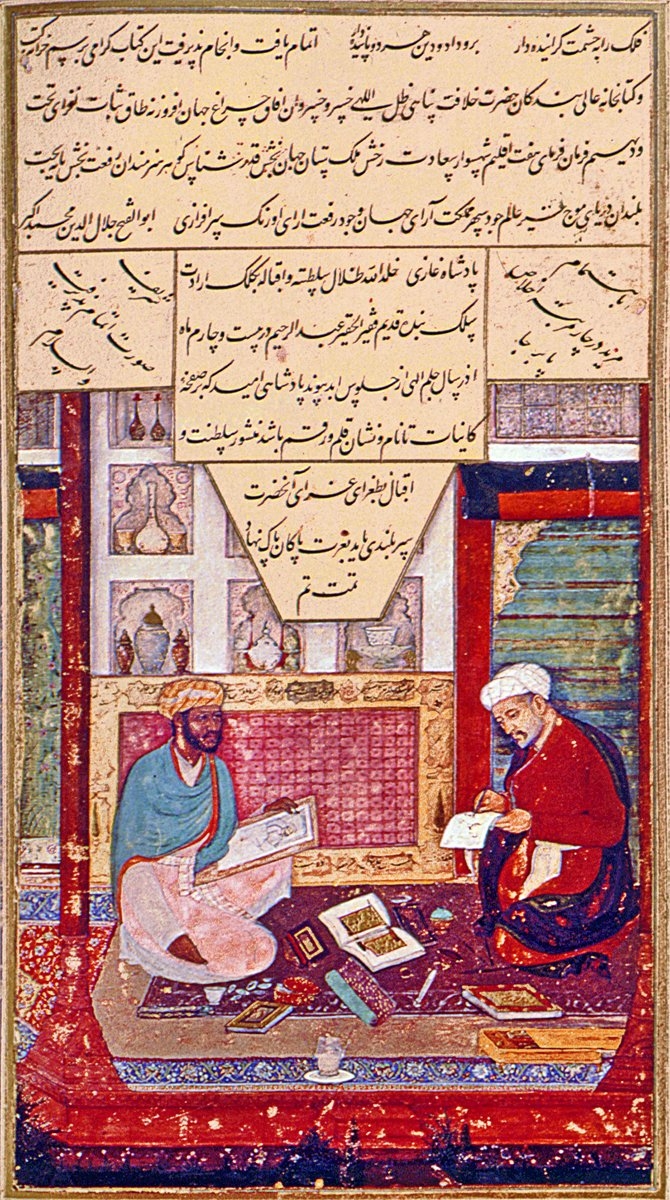 فلک را به چشمت گراینده دار برو داد و دین هر دو پاینده دار اتمام یافت و انجام پذیرفت این کتاب گرامی برسم خزانه کتب
و کتابخانه عالی بندکان حضرت خلافت پناهی ظل اللهی خسرو افاق چراغ جهان افروز نه طاق ثبات تخت
و دیهیم فرمان فرمای هفت اقلیم شهسوار سعادت رخش ملک ستان جهان بخش قدر شناس کوهر هنرمندان رفعت بخش
بلندان دریای موج خیز عالم جود سپهر مملکت آرای جهان وجود رفعت ارای اورنک سرافرازی ابوالفتح جلال الدین محمد اکبر
پادشاه غازی خلد الله ظلال سلطنته و اقباله بکلک ارادت
بسلک بنده قدیم فقیر الحقیر عبد الرحیم در بیست و چهارم ماه
اذر سال چلم الهی از جلوس ابد پیوند پادشاهی امید که بر صفحه
کاینات تا نام و نشان قلم و رقم باشد منشور سلطنت و
اقبال بطغرای غرای آنحضرت
بسربلندی باید بعزت پاکان پاک نهاد
تمت تم
باهتمام
صورت اتمام پذیرفت
والسلام